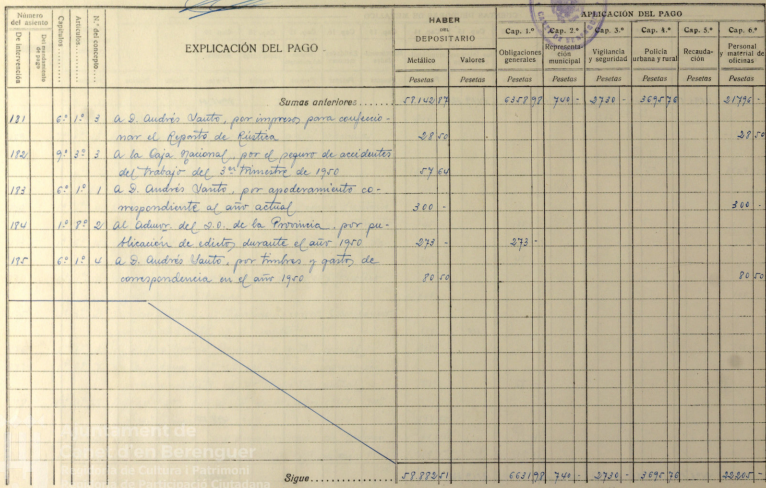 Número del asiento
De intervención
Del mandamiento de pago
Capítulos
Artículos
N.º del concepto
EXPLICACIÓN DEL PAGO
HABER
DEL
DEPOSITARIO
Metálico
Valores
Pesetas
Pesetas
APLICACIÓN DEL PAGO
Cap. 1.º Cap. 2.º Cap. 3.º Cap. 4.º Cap. 5.º Cap. 6.º
Obligaciones generales
Representación municipal
Vigilancia y seguridad
Policía urbana y rural
Recaudación
Personal y material de oficinas
Pesetas Pesetas Pesetas Pesetas Pesetas Pesetas
Sumas anteriores 58.142 87 6358 98 740 - 2730 - 3695 76 21796 -
191 6º 1º 3 A D. Andrés Vantó, por impresos para confeccio-
nar el Reparto de Rústica 28 50 28 50
192 9º 3º 3 A la Caja Nacional, por el seguro de accidentes
del trabajo del 3er Trimestre de 1950 57 64
193 6º 1º 1 A D. Andrés Vantó, por apoderamiento co-
rrespondiente al año actual 300 - 300 -
194 1º 8º 2 Al Admor. del B.O. de la Provincia, por pu-
blicación de edictos durante el año 1950 273 - 273 -
195 6º 1º 4 A D. Andrés Vantó, por timbres y gastos de
correspondencia en el año 1950 80 50 80 50
Sigue 58.882 51 6631 98 740 - 2730 - 3695 76 22205 -
Ajuntament de
Canet d'en Berenguer
Regidoria de Cultura i Patrimoni